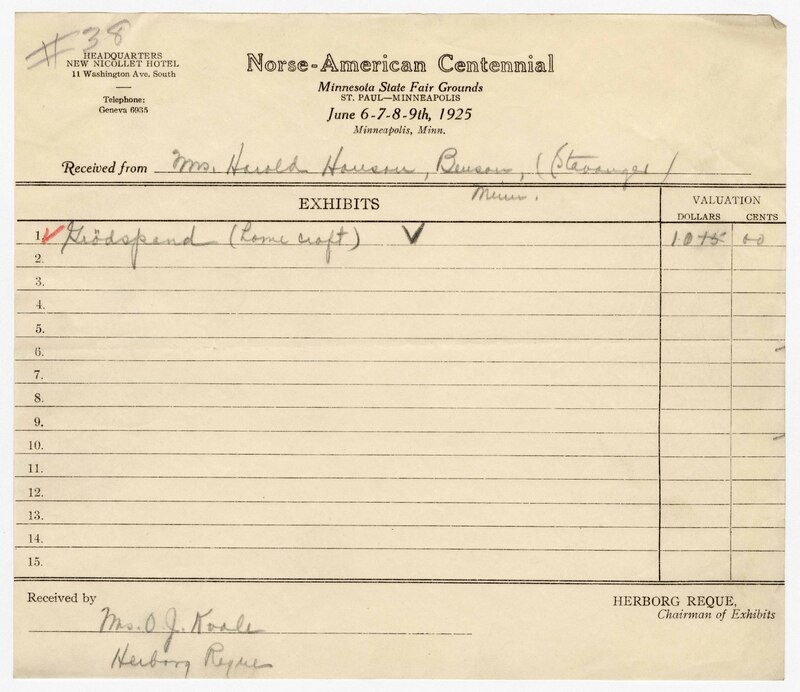 #38
HEADQUARTERS
NEW NICOLLET HOTEL
11 Washington Ave. South
Telephone:
Geneva 6935
Norse-American Centennial
Minnesota State Fair Grounds
ST. PAUL—MINNEAPOLIS
June 6-7-8-9th, 1925
Minneapolis, Minn.
Received from Mrs. Harold Hanson, Benson, (Stavanger)
Minn.
EXHIBITS
VALUATION
DOLLARS CENTS
1. Grödspand (home craft) 10 00
2.
3.
4.
5.
6.
7.
8.
9.
10.
11.
12.
13.
14.
15.
Received by
Mrs. O. J.
Herborg Reque
HERBORG REQUE,
Chairman of Exhibits